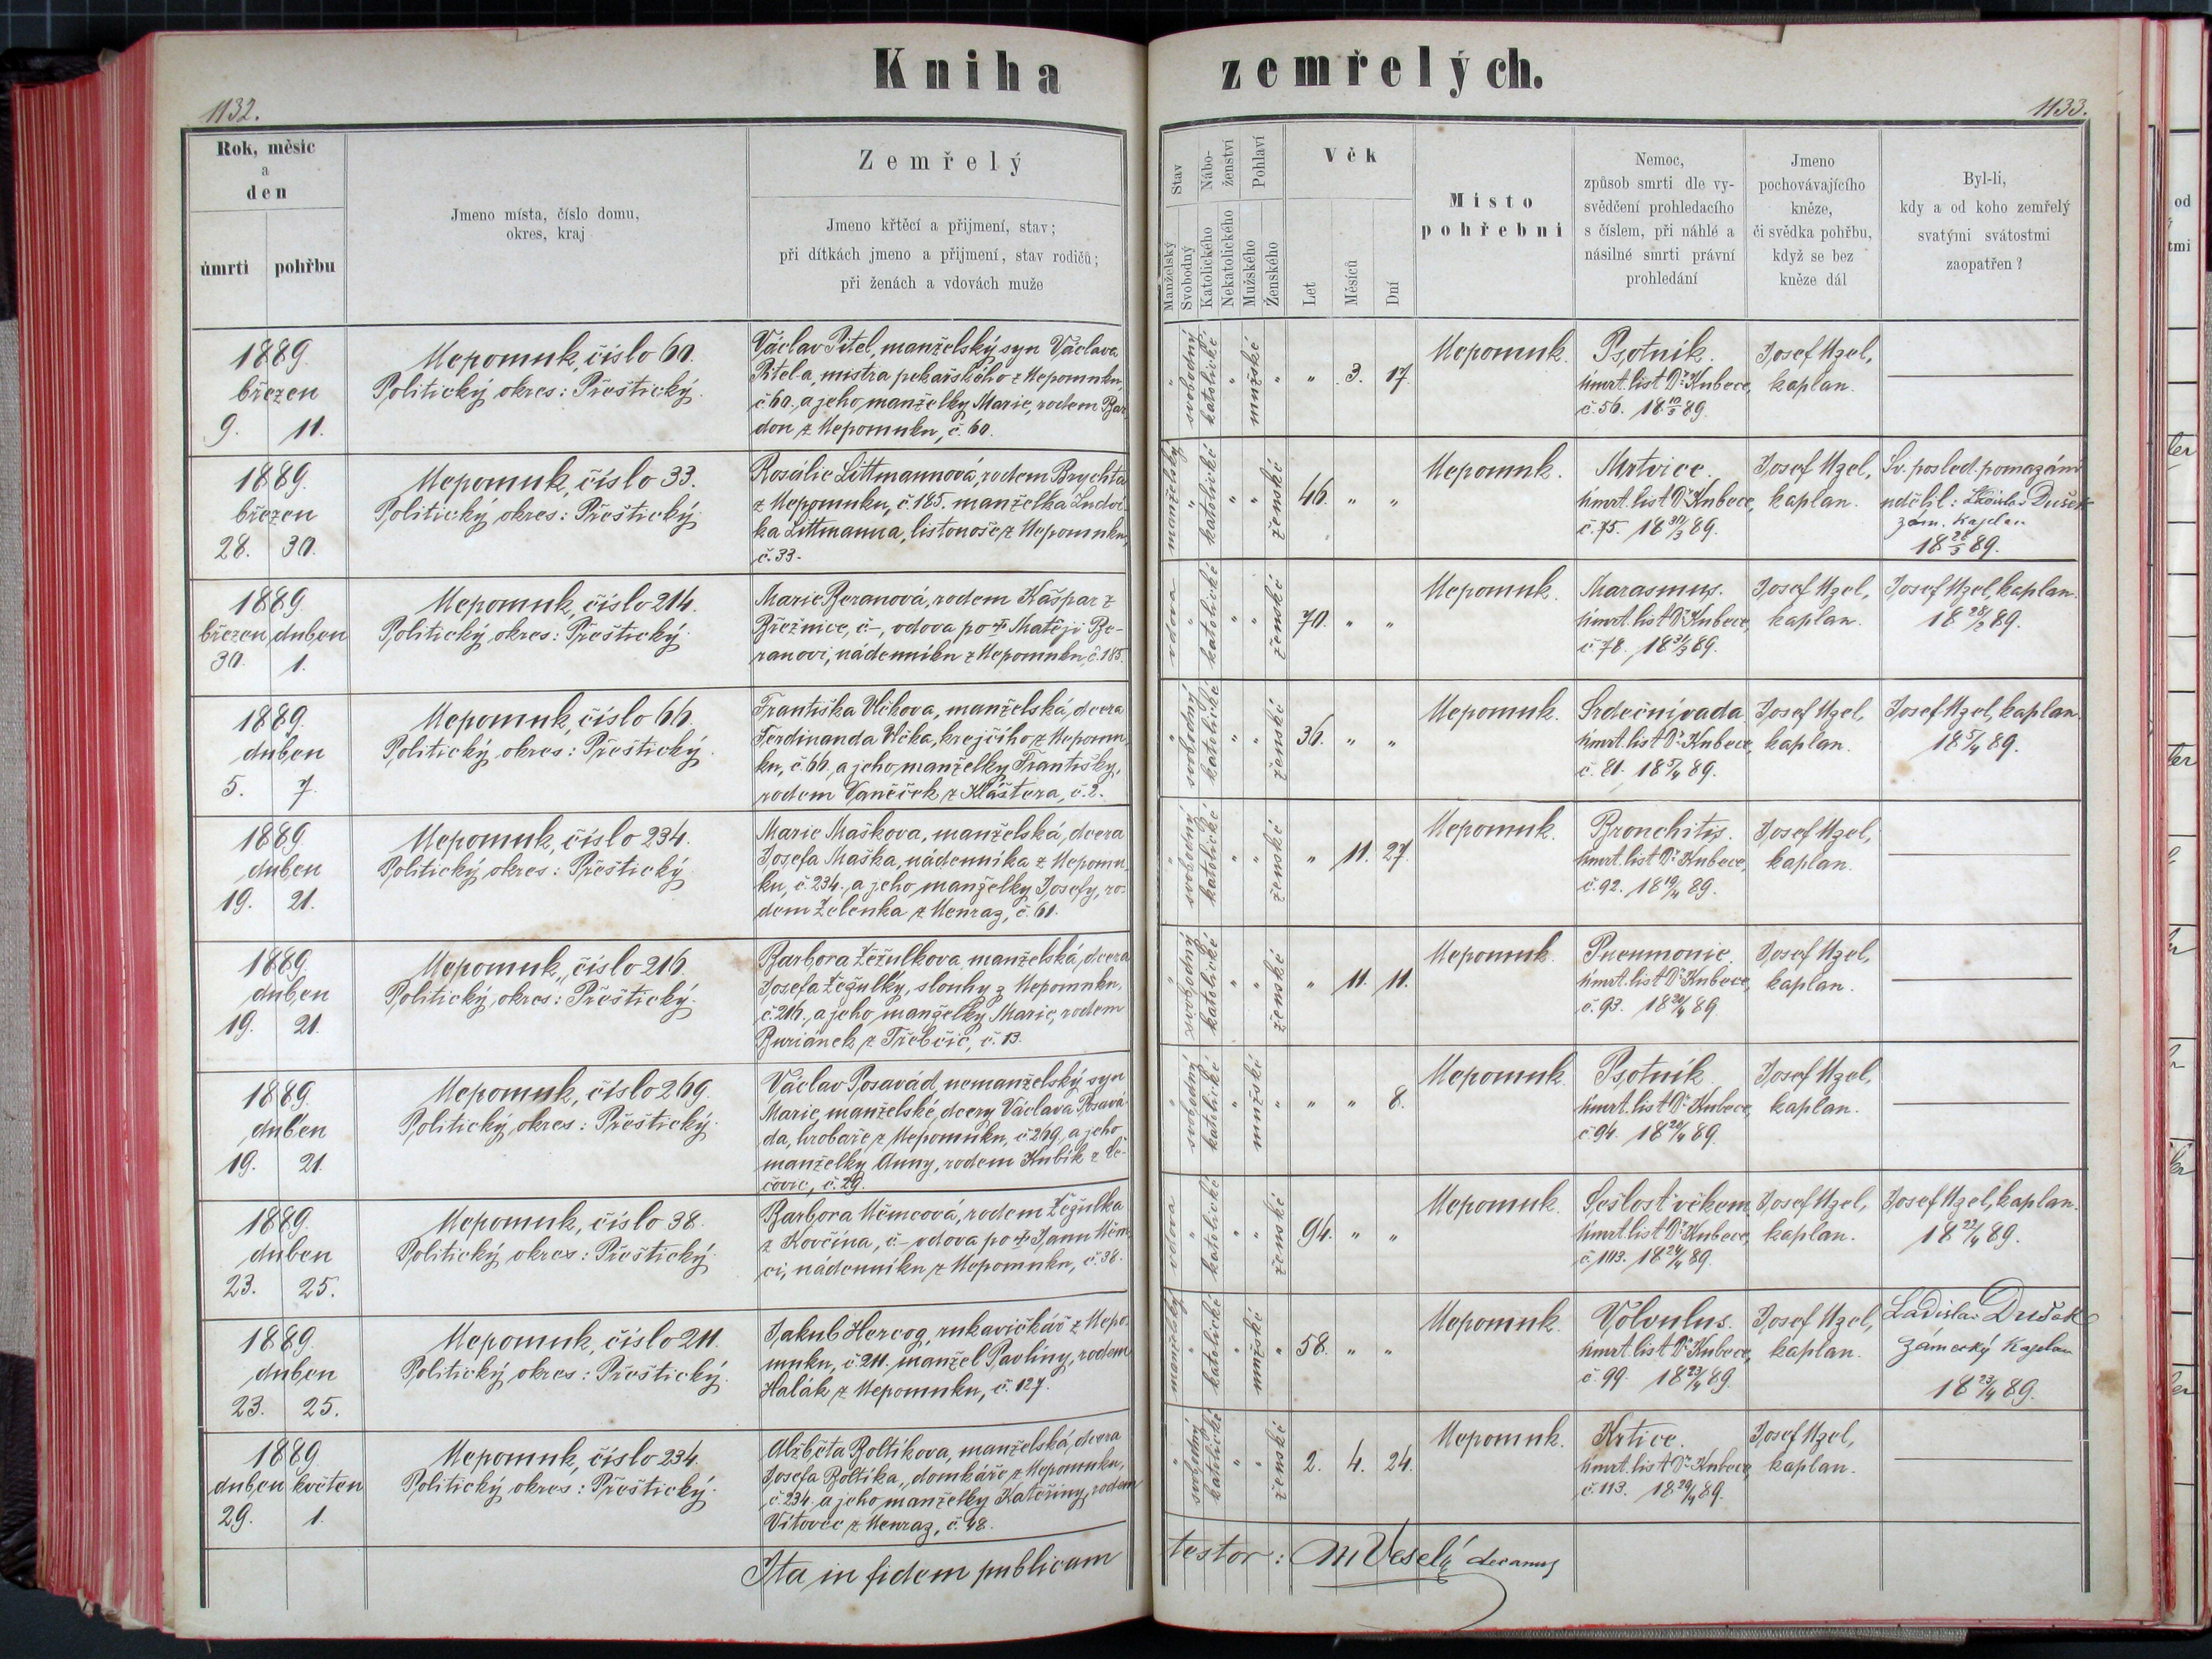 Kniha zemřelých.
1132.
1133.
Rok, měsíc
a
den
úmrtí
pohřbu
Jmeno místa, číslo domu,
okres, kraj
Zemřelý
Jmeno křtěcí a přijmení, stav;
při dítkách jmeno a přijmení, stav rodičů;
při ženách a vdovách muže
Stav
Manželský
Svobodný
Nábo-
ženství
Katolického
Nekatolického
Pohlaví
Mužského
Ženského
Věk
Let
Měsíců
Dní
Místo
pohřební
Nemoc,
způsob smrti dle vy-
svědčení prohledacího
s číslem, při náhlé a
násilné smrti právní
prohledání
Jmeno
pochovávajícího
kněze,
či svědka pohřbu,
když se bez
kněze dál
Byl-li,
kdy a od koho zemřelý
svatými svátostmi
zaopatřen?
1889.
březen
9. 11.
Nepomuk, číslo 60.
Politický okres: Přeštický.
Václav Pitel, manželský syn Václava
Pitela, mistra pekařského z Nepomuku,
č. 60., a jeho manželky Marie, rodem Bar-
don z Nepomuku, č. 60.
" svobodný katolické " mužské "
" 3. 17.
Nepomuk.
Psotník.
úmrt. list Dr. Kubece,
č. 56. 18 10/3 89.
Josef Uzel,
kaplan.
1889.
březen
28. 30.
Nepomuk, číslo 33.
Politický okres: Přeštický.
Rosálie Littmannová, rodem Brychta
z Nepomuku, č. 185. manželka Ludví-
ka Littmanna, listonoše z Nepomuku,
č. 33.
manželský " katolické " " ženské
46. " "
Nepomuk.
Mrtvice.
úmrt. list Dr. Kubece,
č. 75. 18 30/3 89.
Josef Uzel,
kaplan.
Sv. posled. pomazání
udělil: Ladislav Dušek
zám. kaplan
18 28/3 89.
1889.
březen duben
30. 1.
Nepomuk, číslo 214.
Politický okres: Přeštický.
Marie Beranová, rodem Kašpar z
Břežnice, č-, vdova po † Matěji Be-
ranovi, nádenníku z Nepomuku, č. 185.
vdova " katolické " " ženské
70. " "
Nepomuk.
Marasmus.
úmrt. list Dr. Kubece,
č. 78. 18 31/3 89.
Josef Uzel,
kaplan.
Josef Uzel, kaplan.
18 28/2 89.
1889.
duben
5. 7.
Nepomuk, číslo 66.
Politický okres: Přeštický.
Františka Vlčkova, manželská, dcera
Ferdinanda Vlčka, krejčího z Nepomu-
ku, č. 66, a jeho manželky Františky,
rodem Vaněček z Kláštera, č. 2.
" svobodný katolické " " ženské
36. " "
Nepomuk.
Srdeční vada.
úmrt. list Dr. Kubece,
č. 81. 18 5/4 89.
Josef Uzel,
kaplan.
Josef Uzel, kaplan.
18 5/4 89.
1889.
duben
19. 21.
Nepomuk, číslo 234.
Politický okres: Přeštický.
Marie Maškova, manželská, dcera
Josefa Maška, nádenníka z Nepomu-
ku, č. 234. a jeho manželky Josefy, ro-
dem Zelenka z Neuraz, č. 61.
" svobodný katolické " " ženské
" 11. 27.
Nepomuk.
Bronchitis.
úmrt. list Dr. Kubece,
č. 92. 18 19/4 89.
Josef Uzel,
kaplan.
1889.
duben
19. 21.
Nepomuk, číslo 216.
Politický okres: Přeštický.
Barbora Žežulkova, manželská, dcera
Josefa Žežulky, slouhy z Nepomuku,
č. 216., a jeho manželky Marie, rodem
Buriánek z Třebčic, č. 13.
" svobodný katolické " " ženské
" 11. 11.
Nepomuk.
Pneumonie.
úmrt. list Dr. Kubece,
č. 93. 18 20/4 89.
Josef Uzel,
kaplan.
1889.
duben
19. 21.
Nepomuk, číslo 269.
Politický okres: Přeštický.
Václav Posavád, nemanželský syn
Marie, manželské, dcery Václava Posavá-
da, hrobaře z Nepomuku, č. 269, a jeho
manželky Anny, rodem Kubík z Ve-
čovic, č. 29.
" svobodný katolické " mužské "
" " 8.
Nepomuk.
Psotník.
úmrt. list Dr. Kubece,
č. 94. 18 20/4 89.
Josef Uzel,
kaplan.
1889.
duben
23. 25.
Nepomuk, číslo 38.
Politický okres: Přeštický.
Barbora Němcová, rodem Žežulka
z Kovčína, č- vdova po † Janu Něm-
ci, nádenníku z Nepomuku, č. 38.
vdova " katolické " " ženské
94. " "
Nepomuk.
Sešlost věkem.
úmrt. list Dr. Kubece,
č. 103. 18 24/4 89.
Josef Uzel,
kaplan.
Josef Uzel, kaplan.
18 22/4 89.
1889.
duben
23. 25.
Nepomuk, číslo 211.
Politický okres: Přeštický.
Jakub Hercog, rukavičkář z Nepo-
muku, č. 211. manžel Pavlíny, rodem
Halák z Nepomuku, č. 127.
manželský " katolické " mužské "
58. " "
Nepomuk.
Volvulus.
úmrt. list Dr. Kubece,
č. 99. 18 23/4 89.
Josef Uzel,
kaplan.
Ladislav Dušek
zámecký kaplan
18 23/4 89.
1889.
duben květen
29. 1.
Nepomuk, číslo 234.
Politický okres: Přeštický.
Alžběta Boltíkova, manželská, dcera
Josefa Boltíka, domkáře z Nepomuku,
č. 234. a jeho manželky Kateřiny, rodem
Vítovec z Neuraz, č. 48.
" svobodný katolické " " ženské
2. 4. 24.
Nepomuk.
Krtice.
úmrt. list Dr. Kubece,
č. 113. 18 29/4 89.
Josef Uzel,
kaplan.
Ita in fidem publicam
testor: M Veselý decanus